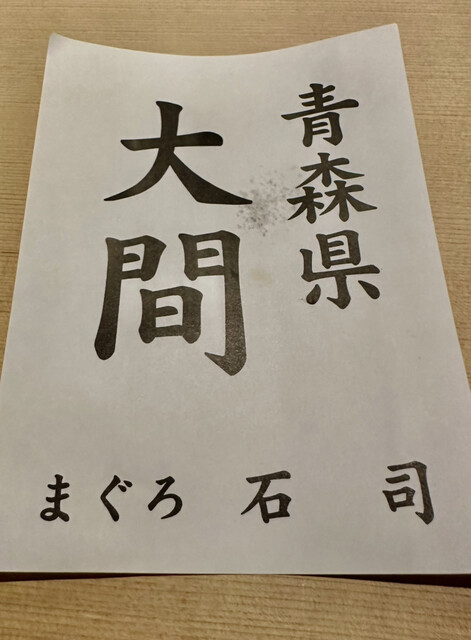 青森県
大間
まぐろ 石司